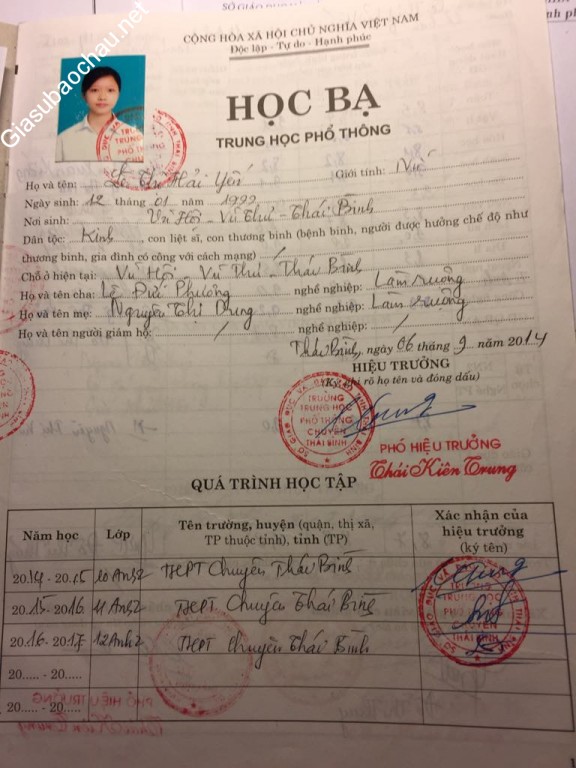 SỞ GIÁO DỤC
CỘNG HÒA XÃ HỘI CHỦ NGHĨA VIỆT NAM
Độc lập - Tự do - Hạnh phúc
Giasubaochau.net
HỌC BẠ
TRUNG HỌC PHỔ THÔNG
Họ và tên: Lê Thị Hải Yến Giới tính: Nữ
Ngày sinh: 12 tháng 01 năm 1999
Nơi sinh: Vũ Hội - Vũ Thư - Thái Bình
Dân tộc: Kinh, con liệt sĩ, con thương binh (bệnh binh, người được hưởng chế độ như
thương binh, gia đình có công với cách mạng) /
Chỗ ở hiện tại: Vũ Hội - Vũ Thư - Thái Bình
Họ và tên cha: Lê Đức Phương nghề nghiệp: Làm ruộng
Họ và tên mẹ: Nguyễn Thị Dung nghề nghiệp: Làm ruộng
Họ và tên người giám hộ: / nghề nghiệp: /
Thái Bình, ngày 06 tháng 9 năm 2014
HIỆU TRƯỞNG
(Ký, ghi rõ họ tên và đóng dấu)
TRƯỜNG
TRUNG HỌC
PHỔ THÔNG
CHUYÊN
THÁI BÌNH
PHÓ HIỆU TRƯỞNG
Thái Kiên Trung
QUÁ TRÌNH HỌC TẬP
Năm học Lớp Tên trường, huyện (quận, thị xã, TP thuộc tỉnh), tỉnh (TP) Xác nhận của hiệu trưởng (ký tên)
2014 - 2015 10 Anh2 THPT Chuyên Thái Bình
2015 - 2016 11 Anh2 THPT Chuyên Thái Bình
2016 - 2017 12 Anh2 THPT Chuyên Thái Bình
20..... - 20.....
20..... - 20.....
PHÓ HIỆU TRƯỞNG
Thái Kiên Trung